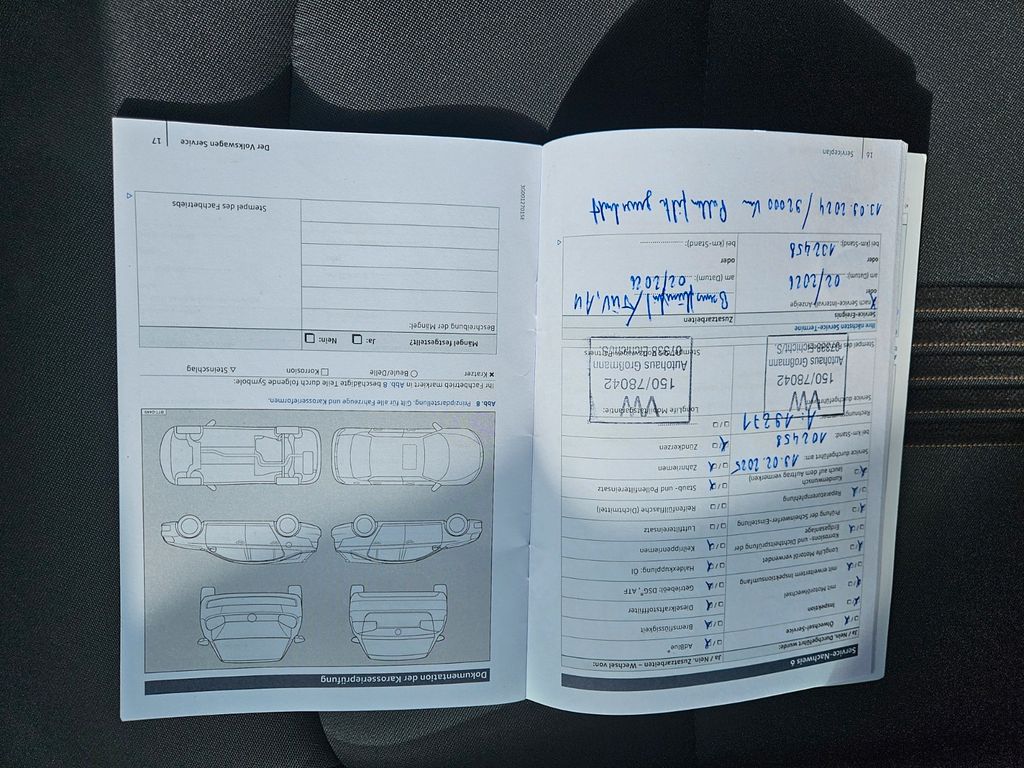 Service-Nachweis 6
Ja / Nein, Durchgeführt wurde:
Ölwechsel-Service
Inspektion
mit Motorölwechsel
mit erweitertem Inspektionsumfang
LongLife Motoröl verwendet
Korrosions- und Dichtheitsprüfung der Erdgasanlage
Prüfung der Scheinwerfer-Einstellung
Reparaturempfehlung
Kundenwunsch
(auch auf dem Auftrag vermerken)
Service durchgeführt am: 19.02.2025
bei km-Stand: 102458
Rechnungs
Service durchgeführt
Stempel des
VW
150/78042
Autohaus Großmann
07338 Eichicht/S
Ja / Nein, Zusatzarbeiten – Wechsel von:
AdBlue®
Bremsflüssigkeit
Dieselkraftstofffilter
Getriebeöl: DSG®, ATF
Haldexkupplung: Öl
Keilrippenriemen
Luftfiltereinsatz
Reifenfüllflasche (Dichtmittel)
Staub- und Pollenfiltereinsatz
Zahnriemen
Zündkerzen
LongLife Mobilitätsgarantie:
VW
150/78042
Autohaus Großmann
07338 Eichicht/S
Ihre nächsten Service-Termine
Service-Ereignis
Zusatzarbeiten
Nach Service-Intervall-Anzeige
oder
am (Datum): 02/2026
oder
bei (km-Stand): 132458
am (Datum): 02/2026
oder
bei (km-Stand):
16 Serviceplan
Dokumentation der Karosserieprüfung
Abb. 8 Prinzipdarstellung: Gilt für alle Fahrzeuge und Karosserieformen.
Ihr Fachbetrieb markiert in Abb. 8 beschädigte Teile durch folgende Symbole:
× Kratzer ○ Beule/Delle □ Korrosion △ Steinschlag
Mängel festgestellt? Ja: Nein:
Beschreibung der Mängel:
Stempel des Fachbetriebs
Der Volkswagen Service 17